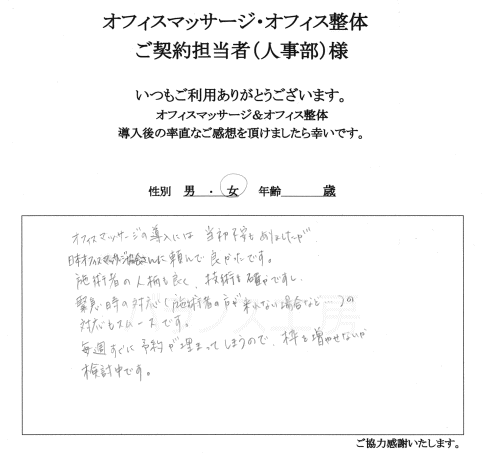 オフィスマッサージ・オフィス整体
ご契約担当者（人事部）様
いつもご利用ありがとうございます。
オフィスマッサージ＆オフィス整体
導入後の率直なご感想を頂けましたら幸いです。
性別 男 ・ 女 年齢 歳
オフィスマッサージの導入には 当初不安もありましたが
日本オフィスマッサージ協会さんに頼んで良かったです。
施術者の人柄も良く、技術も確かですし、
緊急時の対応（施術者の方が来れない場合など…）の
対応もスムーズです。
毎週すぐに予約が埋まってしまうので、枠を増やせないか
検討中です。
ご協力感謝いたします。